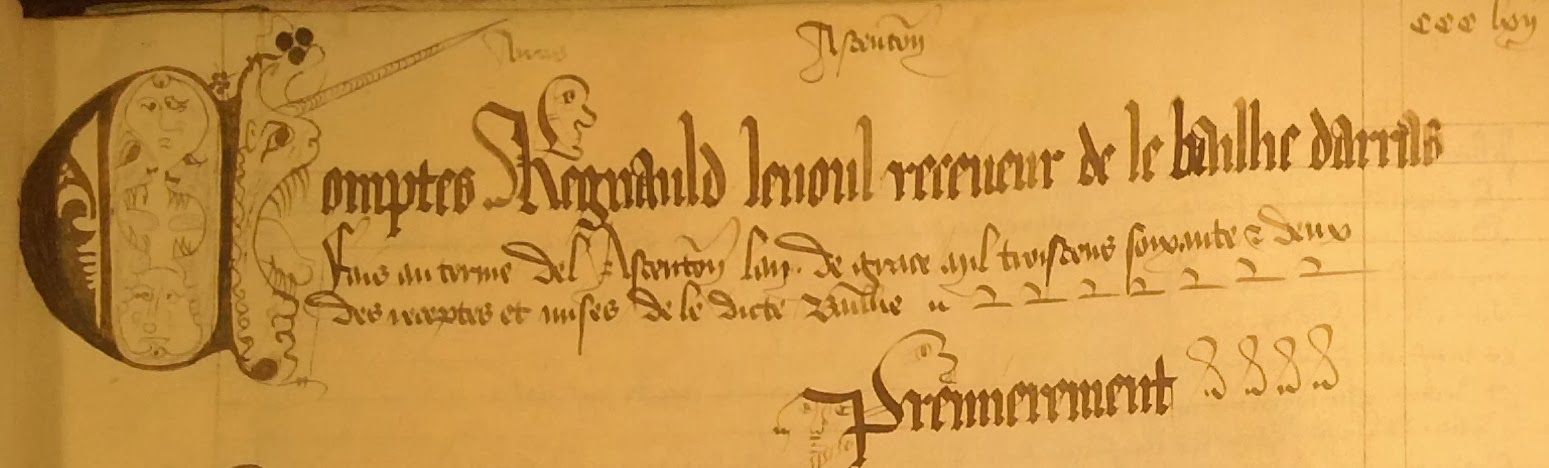 Arras Ascention ccc lxij
Comptes Regnauld levoul receveur de le baillie darras
Fais au terme de l Ascention lan de grace mil troiscens soixante & deux
des receptes et mises de le dicte Baillie
Premierement